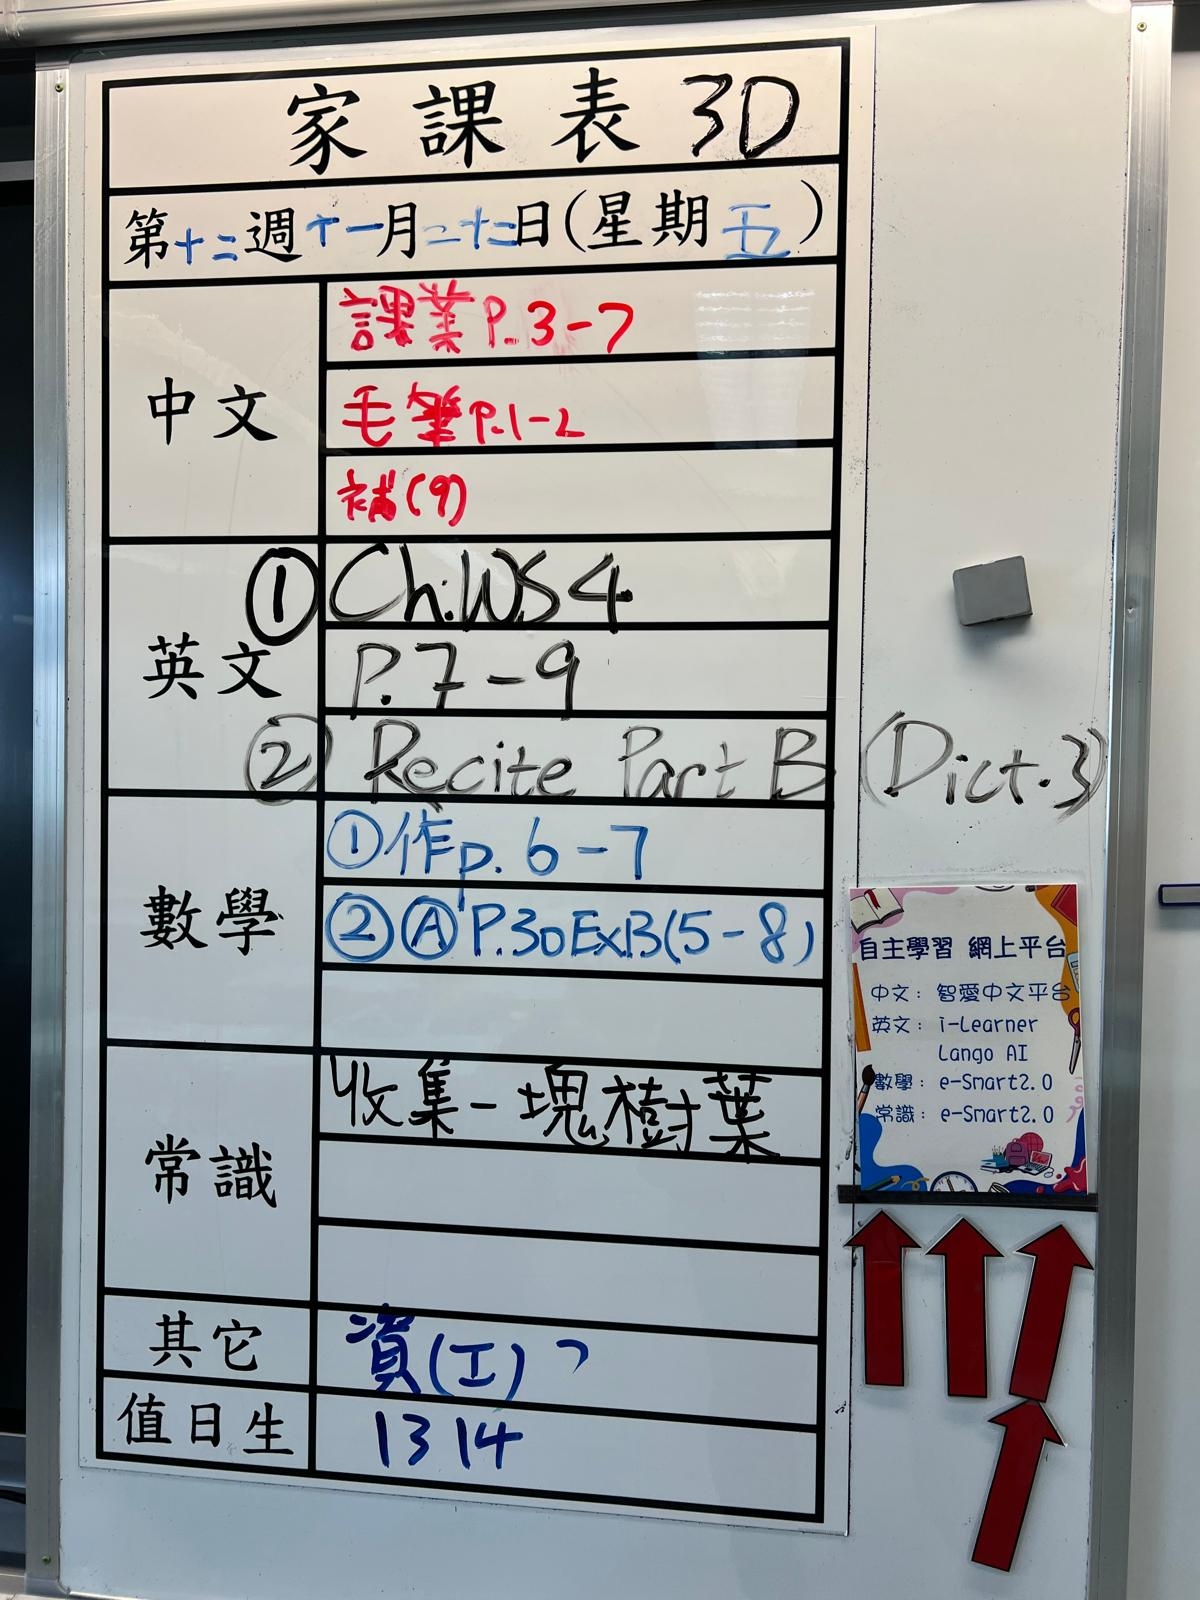 家課表 3D
第十二週十一月二十二日(星期五)
中文
課業P.3-7
毛筆P.1-2
補(9)
英文
① Ch.WS 4
P.7-9
② Recite Part B (Dict.3)
數學
①作p.6-7
②Ⓐ P.30 Ex.B(5-8)
常識
收集一塊樹葉
其它
資(工)
值日生
13 14
自主學習 網上平台
中文：智愛中文平台
英文：i-Learner
Lango AI
數學：e-Smart2.0
常識：e-Smart2.0